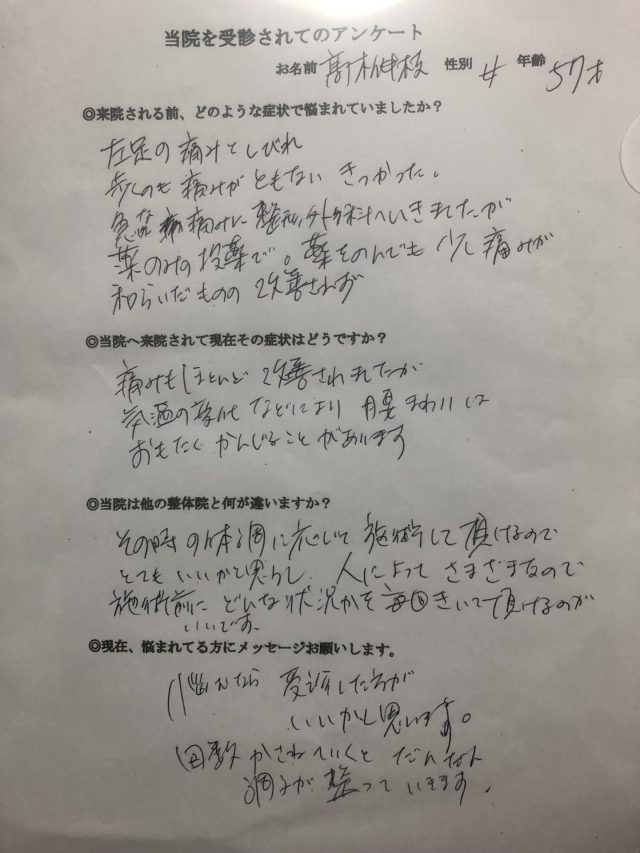 当院を受診されてのアンケート
お名前 性別 女 年齢 57才
◎来院される前、どのような症状で悩まれていましたか?
左足の痛みとしびれ
歩くのも痛みがともないきつかった。
急な痛みに整形外科へいきましたが
薬のみの投薬で。薬をのんでも少し痛みが
和らいだものの改善されず
◎当院へ来院されて現在その症状はどうですか?
痛みもほとんど改善されましたが
などにより腰まわりは
おもたくかんじることがあります
◎当院は他の整体院と何が違いますか?
その時の体調に応じて施術して頂けるので
とてもいいかと思うし、人によってさまざまなので
施術前にどんな状況かを毎回きいて頂けるのが
いいです。
◎現在、悩まれてる方にメッセージお願いします。
悩むなら受診した方が
いいかと思います。
回数かさねていくとだんだん
調子が整っていきます。